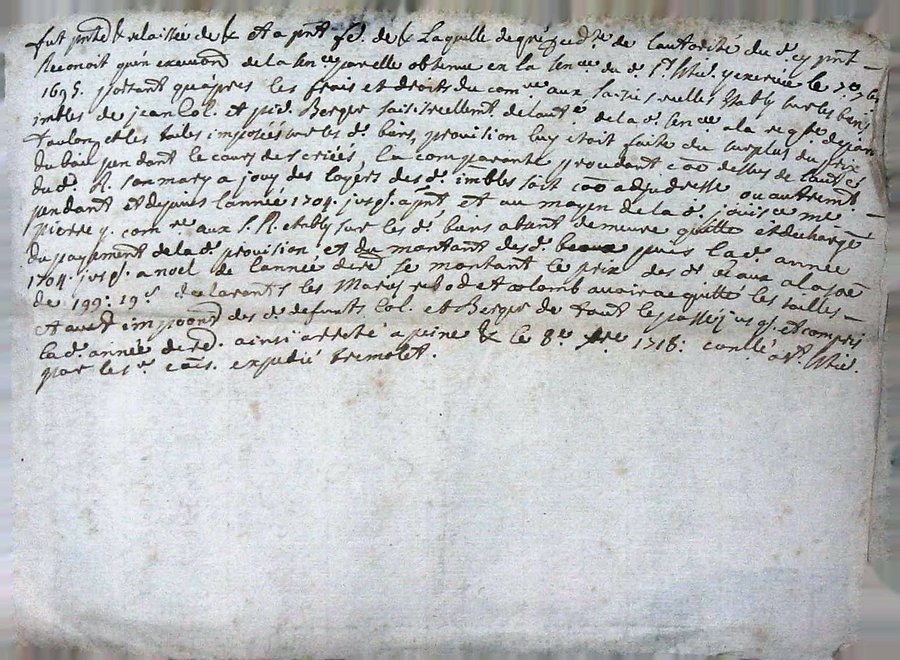 fut pnte & relaissée de & et a pnt fd. de & Laquelle de gré de lautorité du d. cy pnt
Reconoit quén execuond de la sence par elle obtenue en la senée du d. st. exercue le 7.e 7bre
1695. portant quápres les frais et droits du comre aux saisies reelles Etably sur les biens
imbles de jean Col. et Berger saisis reellemt. de lautté de la d. sence a la reqte de jean
Toulon, et les tailes imposés sur les d. biens, provision luy etoit faite du surplus du prix
du bail pendant le cours des criées, la comparante procedant coe dessus de lautté
du d. R. son mary a jouy des loyers des d. imbles soit coe adjudresse ou autremt.
pendant et depuis lannée 1704. jusq. a pnt et au moyen de la d. jouisce me
pierre comre aux S. R. etably sur les d. biens abant demeure quitte et decharge
du payement de la d. provision et du montant des d. beaux puis la d. année
1704. jusq. a noel de lannée dre se montant le prix des d. beaux a la soe
de 199: 19 s declarants les Mariés rebod et colomb avoir acquitté les tailles
et autt impoons des d. defunts Col. et Berger de tout le passé jusq. et compris
la d. année dre. ainsi arreté a peine & le 8e 1718: conllé
par les cois. expedié tremolet.